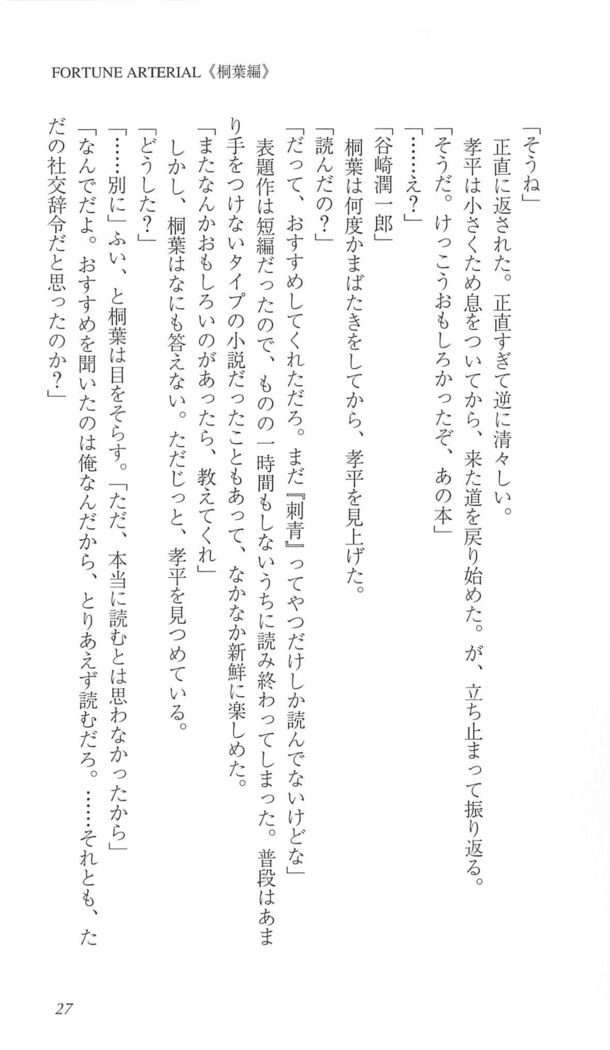 FORTUNE ARTERIAL《桐葉編》
「そうね」
　正直に返された。正直すぎて逆に清々しい。
　孝平は小さくため息をついてから、来た道を戻り始めた。が、立ち止まって振り返る。
「そうだ。けっこうおもしろかったぞ、あの本」
「……え？」
「谷崎潤一郎」
　桐葉は何度かまばたきをしてから、孝平を見上げた。
「読んだの？」
「だって、おすすめしてくれただろ。まだ『刺青』ってやつだけしか読んでないけどな」
　表題作は短編だったので、ものの一時間もしないうちに読み終わってしまった。普段はあま
り手をつけないタイプの小説だったこともあって、なかなか新鮮に楽しめた。
「またなんかおもしろいのがあったら、教えてくれ」
　しかし、桐葉はなにも答えない。ただじっと、孝平を見つめている。
「どうした？」
「……別に」ふい、と桐葉は目をそらす。「ただ、本当に読むとは思わなかったから」
「なんでだよ。おすすめを聞いたのは俺なんだから、とりあえず読むだろ。……それとも、た
だの社交辞令だと思ったのか？」
27